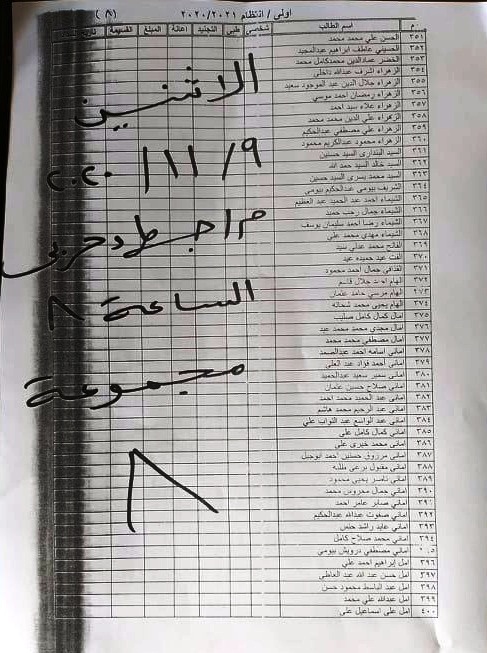 اولى / انتظام ٢٠٢٠/٢٠٢١ (٨)
م اسم الطالب شخصى طبى التجنيد اعانة المبلغ القسيمة
٣٥١ الحسن على محمد محمد
٣٥٢ الحسينى عاطف ابراهيم عبدالمجيد
٣٥٣ الخضر عمادالدين محمدكامل محمد
٣٥٤ الزهراء اشرف عبدالله داخلى
٣٥٥ الزهراء جلال الدين عبد الموجود سعيد
٣٥٦ الزهراء رمضان احمد موسى
٣٥٧ الزهراء علاء سيد احمد
٣٥٨ الزهراء على الدين محمد محمد
٣٥٩ الزهراء على مصطفي عبدالحكيم
٣٦٠ الزهراء محمود عبدالكريم محمود
٣٦١ السيد البندارى السيد حسنين
٣٦٢ السيد خالد السيد حمد الله
٣٦٣ السيد محمد يسرى السيد حسين
٣٦٤ الشريف بيومى عبدالحكيم بيومى
٣٦٥ الشيماء احمد عبد الحميد عبد العظيم
٣٦٦ الشيماء جمال رجب حميد
٣٦٧ الشيماء رضا احمد سليمان يوسف
٣٦٨ الشيماء مهدى محمد على
٣٦٩ الفاتح محمد عدلى سيد
٣٧٠ الفت عيد حميده عيد
٣٧١ القذافى جمال احمد محمود
٣٧٢ الهام احمد جلال قاسم
٣٧٣ الهام مرسى حامد عثمان
٣٧٤ الهام يحيى محمد شحاته
٣٧٥ امال كمال كامل صليب
٣٧٦ امال مجدى محمد محمد عبد
٣٧٧ امال مصطفي محمد محمد
٣٧٨ امانى اسامه احمد عبدالصمد
٣٧٩ امانى احمد فؤاد عبد العلى
٣٨٠ امانى سمير سعيد عبدالحميد
٣٨١ امانى صلاح حسين عثمان
٣٨٢ امانى عبد الحميد محمد احمد
٣٨٣ امانى عبد الرحيم محمد هاشم
٣٨٤ امانى عبد الواسع عبد التواب على
٣٨٥ امانى كمال كامل على
٣٨٦ امانى محمد خيرى على
٣٨٧ امانى مرزوق حسنين احمد ابوجبل
٣٨٨ امانى مقبول برعى طلبه
٣٨٩ امانى ناصر يحيى محمود
٣٩٠ امانى جمال محروس محمد
٣٩١ امانى صابر عامر احمد
٣٩٢ امانى صفوت عبدالله عبدالحكيم
٣٩٣ امانى عايد راشد حنس
٣٩٤ امانى محمد صلاح كامل
امانى مصطفي درويش بيومى
٣٩٦ امل إبراهيم احمد على
٣٩٧ امل حسن عبد الله عبد العاطى
٣٩٨ امل عبد الباسط محمود حسن
٣٩٩ امل عبدالله على محمد
٤٠٠ امل على اسماعيل على
الاثنين
٩/١١/٢٠٢٠
الساعة ٨
مجموعة
٨